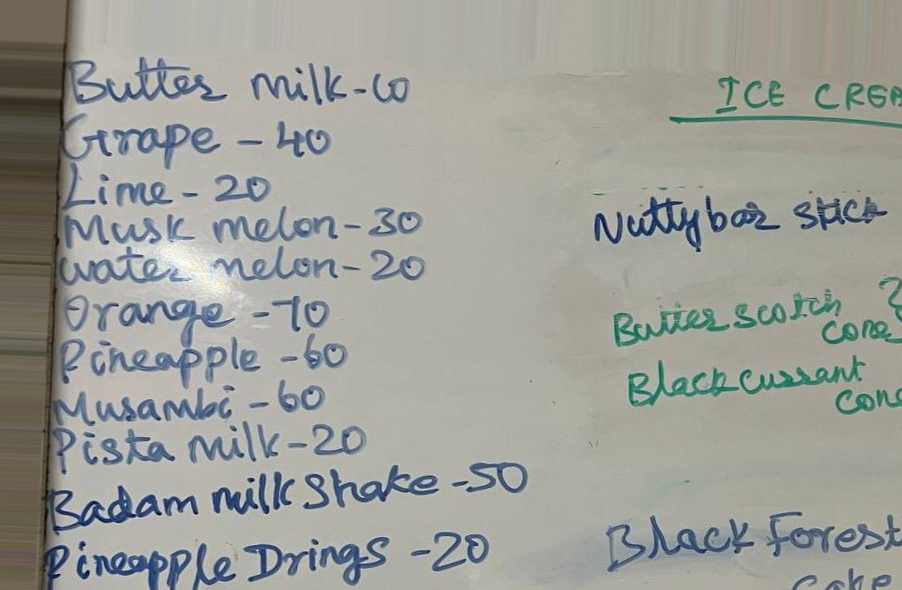 Butter milk-60
Grape - 40
Lime - 20
Musk melon - 30
water melon - 20
Orange - 70
Pineapple - 60
Musambi - 60
Pista milk - 20
Badam milk Shake - 50
Pineapple Drings - 20
ICE CREA
Nutty bar stick
Butter scotch
cone
Black currant
cone
Black Forest
cake